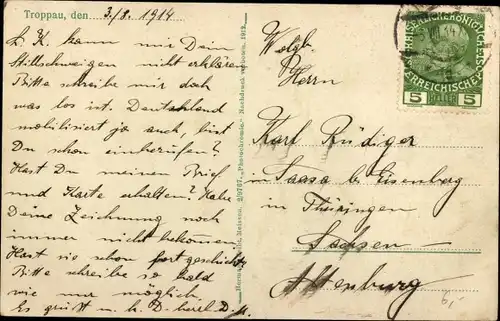 Troppau, den 3./8. 1914
L. K. kann mir Dein
Stillschweigen nicht erklären
Bitte schreibe mir doch
was los ist. Deutschland
mobilisiert ja auch, bist
Du schon einberufen?
Hast Du meinen Brief
und Karte erhalten? Habe
Deine Zeichnung noch
immer nicht bekommen.
Hast sie schon fortgeschickt?
Bitte schreibe so bald
wie nur möglich.
Es grüßt u. k. D. herzl. D.
Nachdruck verboten. 1912
Wolgb.
Herrn
Karl Rüdiger
in Saasa b. Eisenberg
in Thüringen
Sachsen
Altenburg
KAISERLICHE KÖNIGLICHE
ÖSTERREICHISCHE POST
5 HELLER 5